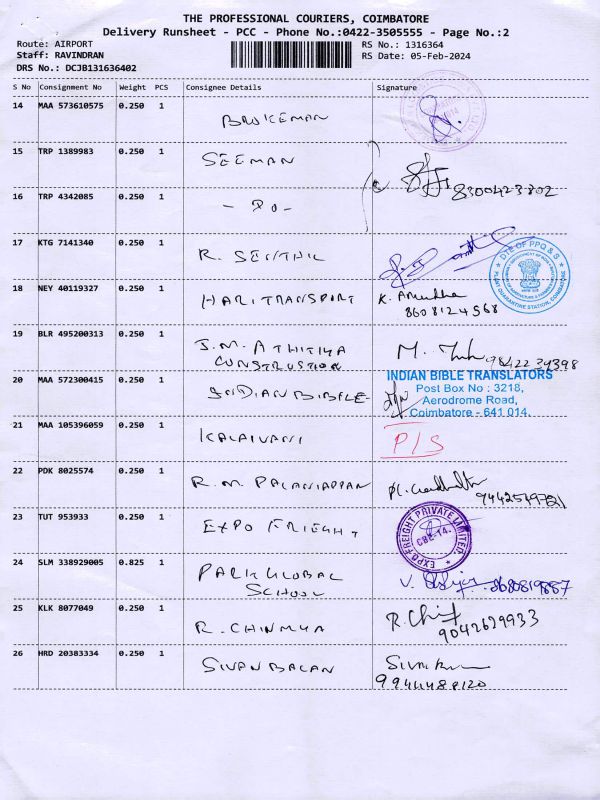 THE PROFESSIONAL COURIERS, COIMBATORE
Delivery Runsheet - PCC - Phone No.:0422-3505555 - Page No.:2
Route: AIRPORT
Staff: RAVINDRAN
DRS No.: DCJB131636402
RS No.: 1316364
RS Date: 05-Feb-2024
S No Consignment No Weight PCS Consignee Details Signature
14 MAA 573610575 0.250 1 BROKEMAN
15 TRP 1389983 0.250 1 SEEMAN
8300423802
16 TRP 4342085 0.250 1 - DO -
17 KTG 7141340 0.250 1 R. SENTHIL
DTE OF PPQ & S
PLANT QUARANTINE STATION, COIMBATORE
18 NEY 40119327 0.250 1 HARI TRANSPORT K. Anudha
8608124568
19 BLR 495200313 0.250 1 J.M. ATHITHYA M.
CONSTRUSTION
20 MAA 572300415 0.250 1 INDIAN BIBLE
INDIAN BIBLE TRANSLATORS
Post Box No : 3218,
Aerodrome Road,
Coimbatore - 641 014.
21 MAA 105396059 0.250 1 KALAIVANI P/S
22 PDK 8025574 0.250 1 R. M. PALANIAPPAN
23 TUT 953933 0.250 1 EXPO FRIEGHT
EXPO FREIGHT PRIVATE LIMITED
CBE-14.
24 SLM 338929005 0.825 1 PARK GLOBAL V.
SCHOOL
25 KLK 8077049 0.250 1 R. CHINMYA R.
9042629933
26 HRD 20383334 0.250 1 SIVAN BALAN